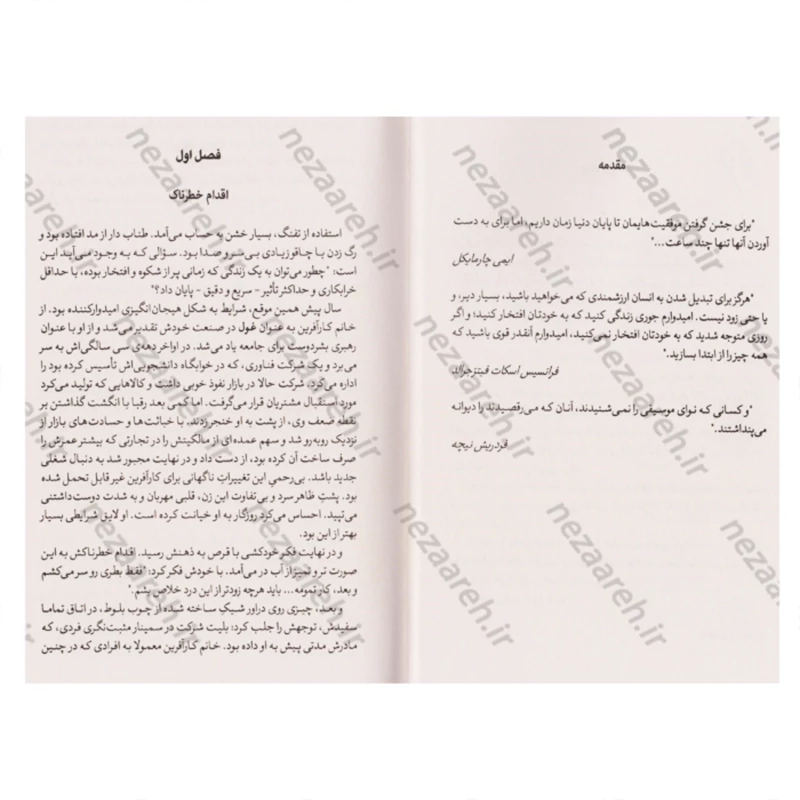 مقدمه
"برای جشن گرفتن موفقیت‌هایمان تا پایان دنیا زمان داریم، اما برای به دست
آوردن آنها تنها چند ساعت..."
ایمی چارمایکل
"هرگز برای تبدیل شدن به انسان ارزشمندی که می‌خواهید باشید، بسیار دیر، و
یا حتی زود نیست. امیدوارم جوری زندگی کنید که به خودتان افتخار کنید؛ و اگر
روزی متوجه شدید که به خودتان افتخار نمی‌کنید، امیدوارم آنقدر قوی باشید که
همه چیز را از ابتدا بسازید."
فرانسیس اسکات فیتزجرالد
"و کسانی که نوای موسیقی را نمی‌شنیدند، آنان که می‌رقصیدند را دیوانه
می‌پنداشتند."
فردریش نیچه
فصل اول
اقدام خطرناک
استفاده از تفنگ، بسیار خشن به حساب می‌آمد. طناب دار از مد افتاده بود و
رگ زدن با چاقو زیادی بی‌سر و صدا بود. سؤالی که به وجود می‌آیند این
است: "چطور می‌توان به یک زندگی که زمانی پر از شکوه و افتخار بوده، با حداقل
خرابکاری و حداکثر تأثیر - سریع و دقیق - پایان داد؟"
سال پیش همین موقع، شرایط به شکل هیجان‌انگیزی امیدوارکننده بود. از
خانم کارآفرین به عنوان غول در صنعت خودش تقدیر می‌شد و از او با عنوان
رهبری بشردوست برای جامعه یاد می‌شد. در اواخر دهه‌ی سی سالگی‌اش به سر
می‌برد و یک شرکت فناوری، که در خوابگاه دانشجویی‌اش تأسیس کرده بود را
اداره می‌کرد. شرکت حالا در بازار نفوذ خوبی داشت و کالاهایی که تولید می‌کرد
مورد استقبال مشتریان قرار می‌گرفت. اما کمی بعد رقبا با انگشت گذاشتن بر
نقطه ضعف وی، از پشت به او خنجر زدند. با خباثت‌ها و حسادت‌های بازار از
نزدیک روبه‌رو شد و سهم عمده‌ای از مالکیتش را در تجارتی که بیشتر عمرش را
صرف ساخت آن کرده بود، از دست داد و در نهایت مجبور شد به دنبال شغلی
جدید باشد. بی‌رحمی این تغییرات ناگهانی برای کارآفرین غیر قابل تحمل شده
بود. پشت ظاهر سرد و بی‌تفاوت این زن، قلبی مهربان و به شدت دوست‌داشتنی
می‌تپید. احساس می‌کرد روزگار به او خیانت کرده است. او لایق شرایطی بسیار
بهتر از این بود.
و در نهایت فکر خودکشی با قرص به ذهنش رسید. اقدام خطرناکش به این
صورت تر و تمیز از آب در می‌آمد. با خودش فکر کرد: "فقط بطری رو سر می‌کشم
و بعد، کار تمومه... باید هرچه زودتر از این درد خلاص بشم."
و بعد، چیزی روی دراور شیک ساخته شده از چوب بلوط، در اتاق تماما
سفیدش، توجهش را جلب کرد؛ بلیت شرکت در سمینار مثبت‌نگری فردی، که
مادرش مدتی پیش به او داده بود. خانم کارآفرین معمولا به افرادی که در چنین
nezaareh.ir